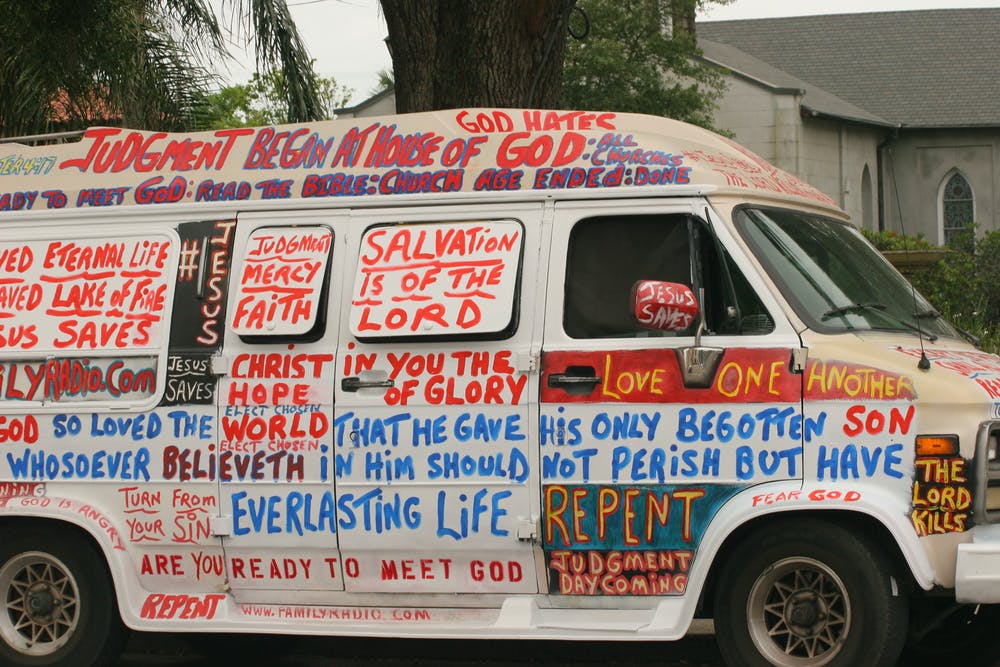 JUDGMENT BEGAN AT HOUSE OF GOD:
GOD HATES
ALL
CHURCHES
READY TO MEET GOD: READ THE BIBLE: CHURCH AGE ENDED: DONE
ETERNAL LIFE
LAKE OF FIRE
SAVES
FAMILYRADIO.COM
#1
JESUS
JESUS
SAVES
JUDGMENT
MERCY
FAITH
SALVATION
IS OF THE
LORD
JESUS
SAVES
CHRIST IN YOU THE
HOPE OF GLORY
LOVE ONE ANOTHER
ELECT CHOSEN
GOD SO LOVED THE WORLD THAT HE GAVE HIS ONLY BEGOTTEN SON
ELECT CHOSEN
WHOSOEVER BELIEVETH iN HIM SHOULD NOT PERISH BUT HAVE
EVERLASTING LiFE
GOD IS ANGRY
TURN FROM
YOUR SIN
REPENT
JUDGMENT
DAY COMING
FEAR GOD
THE
LORD
KILLS
ARE YOU READY TO MEET GOD
REPENT
WWW.FAMILYRADIO.COM